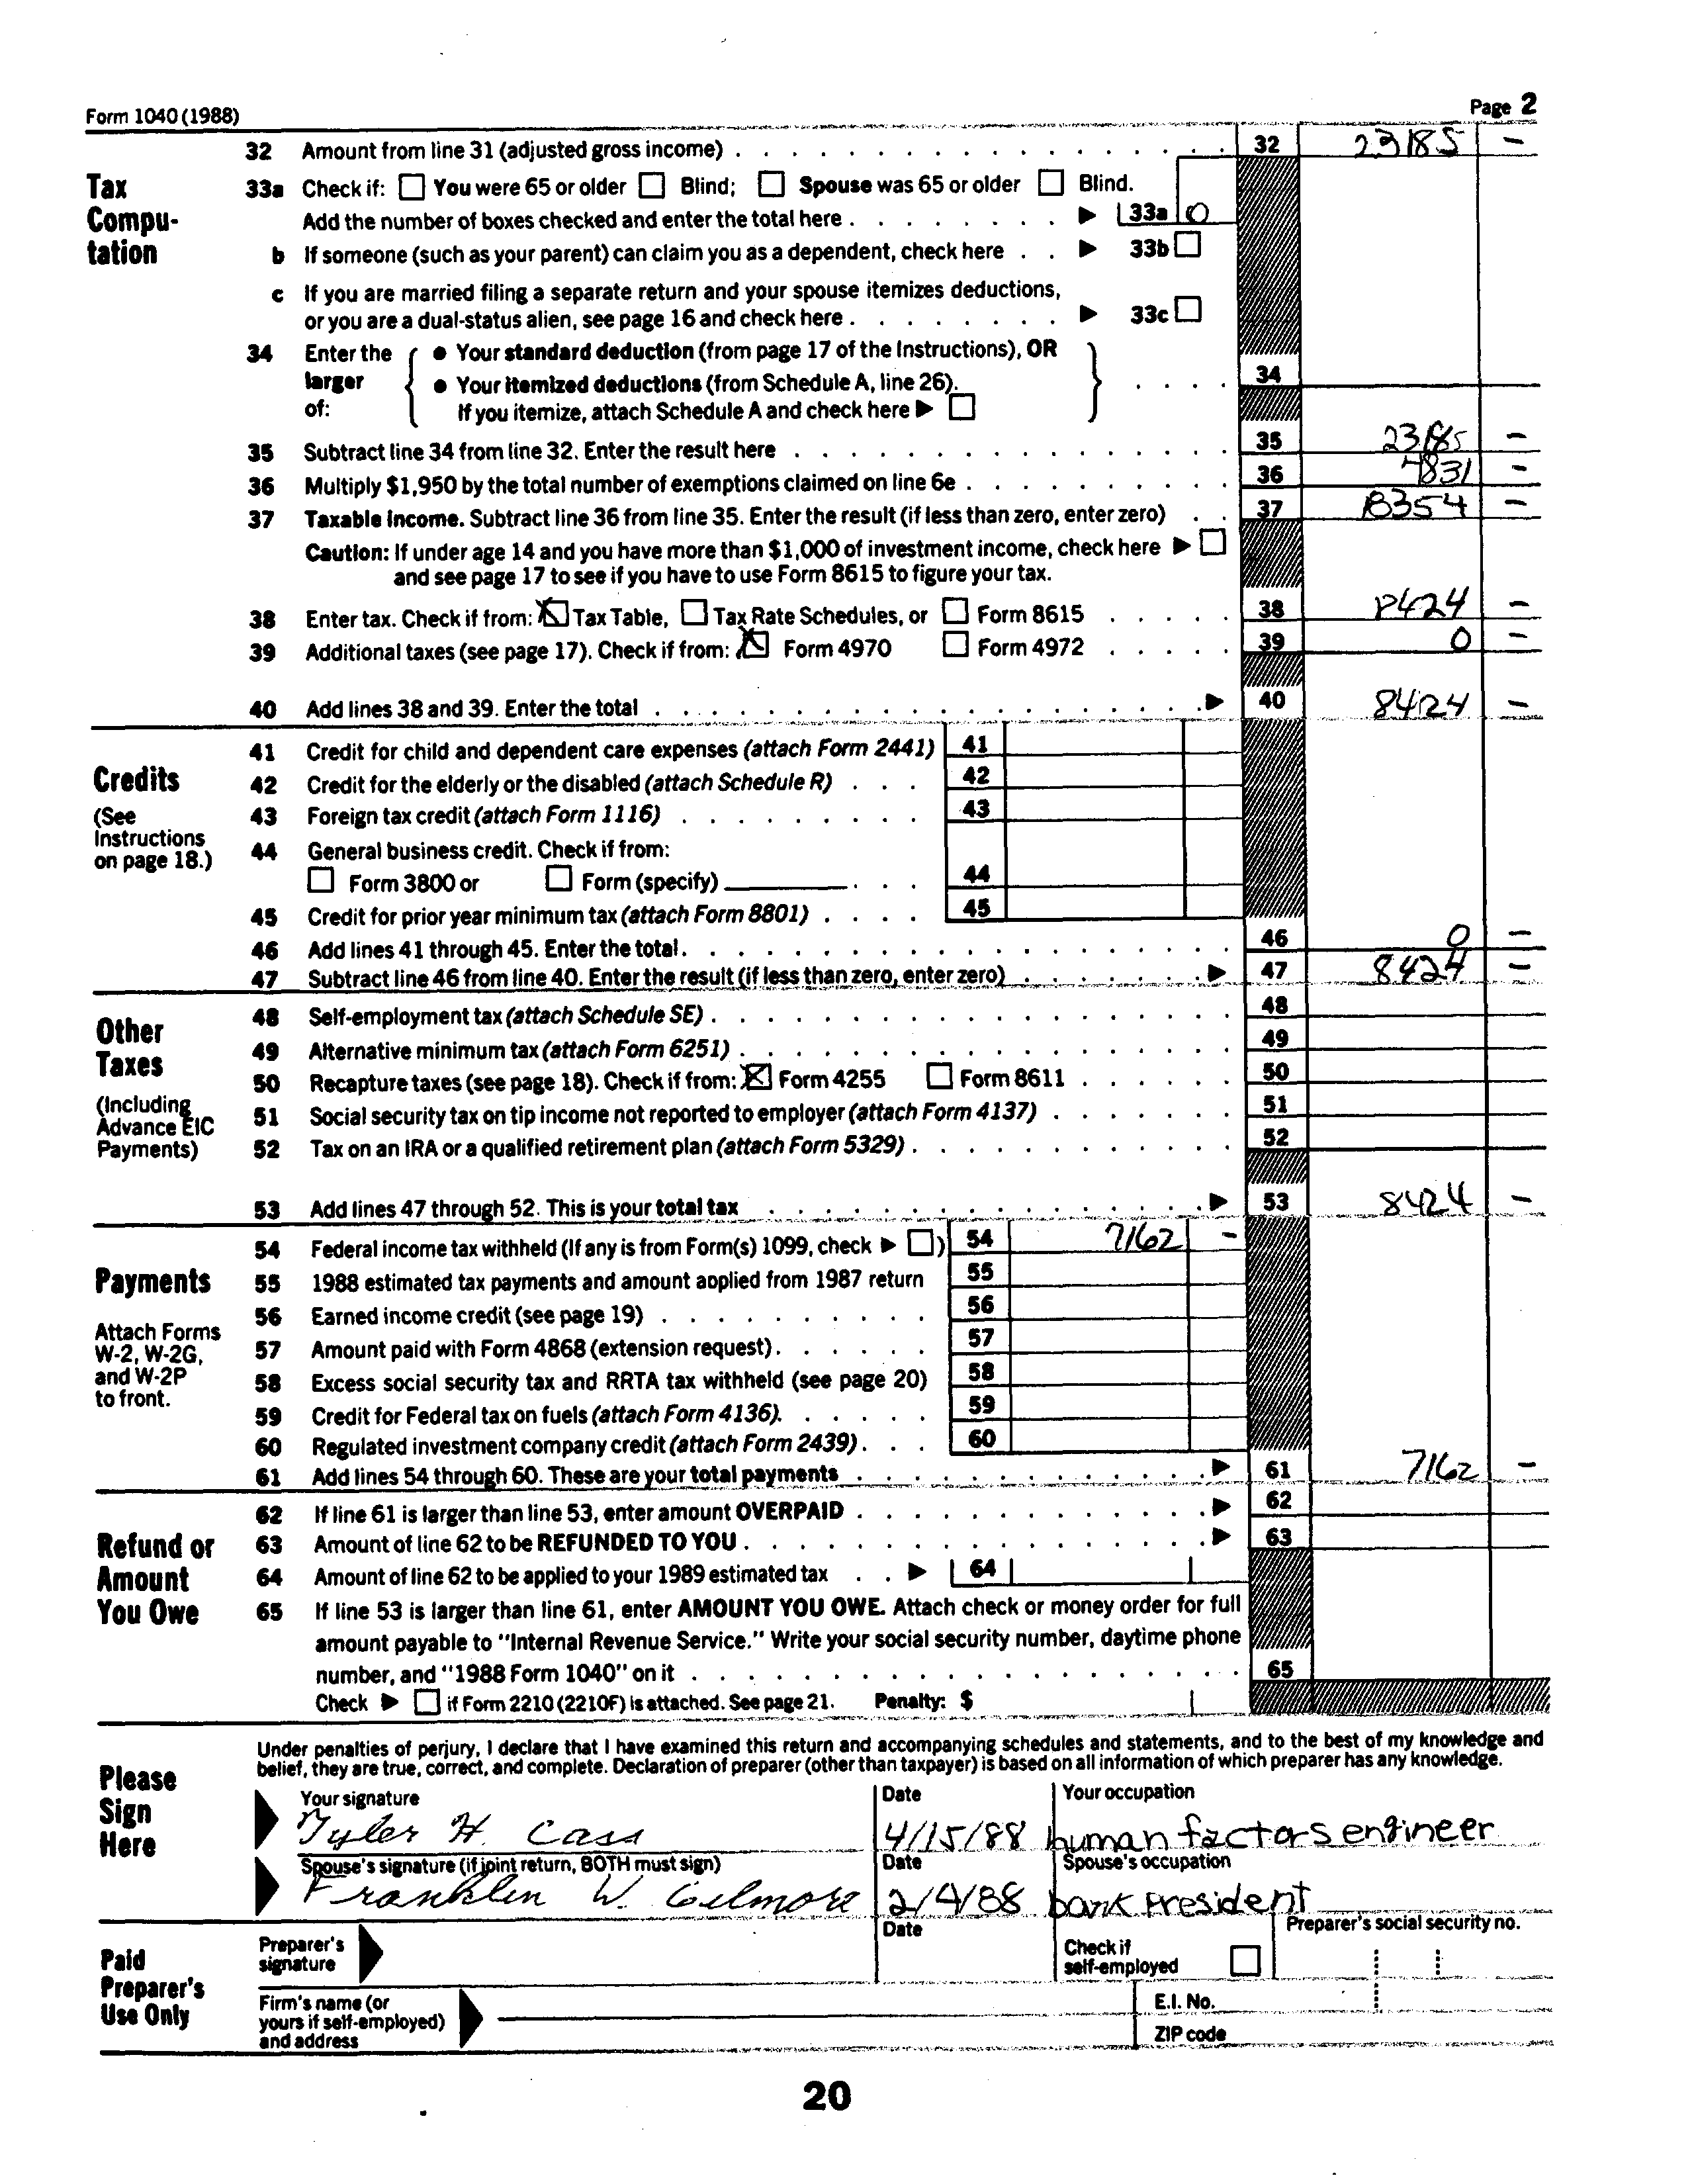 Form 1040 (1988) Page 2
Tax Compu-tation
32 Amount from line 31 (adjusted gross income) 32 23185 –
33a Check if: ☐ You were 65 or older ☐ Blind; ☐ Spouse was 65 or older ☐ Blind.
Add the number of boxes checked and enter the total here ▶ 33a 0
b If someone (such as your parent) can claim you as a dependent, check here ▶ 33b ☐
c If you are married filing a separate return and your spouse itemizes deductions,
or you are a dual-status alien, see page 16 and check here ▶ 33c ☐
34 Enter the larger of: { ● Your standard deduction (from page 17 of the Instructions), OR
● Your itemized deductions (from Schedule A, line 26).
If you itemize, attach Schedule A and check here ▶ ☐ } 34
35 Subtract line 34 from line 32. Enter the result here 35 23185 –
36 Multiply $1,950 by the total number of exemptions claimed on line 6e 36 4831 –
37 Taxable income. Subtract line 36 from line 35. Enter the result (if less than zero, enter zero) 37 18354 –
Caution: If under age 14 and you have more than $1,000 of investment income, check here ▶ ☐
and see page 17 to see if you have to use Form 8615 to figure your tax.
38 Enter tax. Check if from: ☒ Tax Table, ☐ Tax Rate Schedules, or ☐ Form 8615 38 8424 –
39 Additional taxes (see page 17). Check if from: ☒ Form 4970 ☐ Form 4972 39 0 –
40 Add lines 38 and 39. Enter the total ▶ 40 8424 –
Credits
(See Instructions on page 18.)
41 Credit for child and dependent care expenses (attach Form 2441) 41
42 Credit for the elderly or the disabled (attach Schedule R) 42
43 Foreign tax credit (attach Form 1116) 43
44 General business credit. Check if from:
☐ Form 3800 or ☐ Form (specify) 44
45 Credit for prior year minimum tax (attach Form 8801) 45
46 Add lines 41 through 45. Enter the total. 46 0 –
47 Subtract line 46 from line 40. Enter the result (if less than zero, enter zero) ▶ 47 8424 –
Other Taxes
(Including Advance EIC Payments)
48 Self-employment tax (attach Schedule SE) 48
49 Alternative minimum tax (attach Form 6251) 49
50 Recapture taxes (see page 18). Check if from: ☒ Form 4255 ☐ Form 8611 50
51 Social security tax on tip income not reported to employer (attach Form 4137) 51
52 Tax on an IRA or a qualified retirement plan (attach Form 5329) 52
53 Add lines 47 through 52. This is your total tax ▶ 53 8424 –
Payments
Attach Forms W-2, W-2G, and W-2P to front.
54 Federal income tax withheld (If any is from Form(s) 1099, check ▶ ☐) 54 7162 –
55 1988 estimated tax payments and amount applied from 1987 return 55
56 Earned income credit (see page 19) 56
57 Amount paid with Form 4868 (extension request) 57
58 Excess social security tax and RRTA tax withheld (see page 20) 58
59 Credit for Federal tax on fuels (attach Form 4136). 59
60 Regulated investment company credit (attach Form 2439) 60
61 Add lines 54 through 60. These are your total payments ▶ 61 7162 –
Refund or Amount You Owe
62 If line 61 is larger than line 53, enter amount OVERPAID ▶ 62
63 Amount of line 62 to be REFUNDED TO YOU ▶ 63
64 Amount of line 62 to be applied to your 1989 estimated tax ▶ 64
65 If line 53 is larger than line 61, enter AMOUNT YOU OWE. Attach check or money order for full
amount payable to "Internal Revenue Service." Write your social security number, daytime phone
number, and "1988 Form 1040" on it 65
Check ▶ ☐ if Form 2210 (2210F) is attached. See page 21. Penalty: $
Please Sign Here
Under penalties of perjury, I declare that I have examined this return and accompanying schedules and statements, and to the best of my knowledge and
belief, they are true, correct, and complete. Declaration of preparer (other than taxpayer) is based on all information of which preparer has any knowledge.
Your signature Date Your occupation
Tyler H. Cass 4/15/88 human factors engineer
Spouse's signature (if joint return, BOTH must sign) Date Spouse's occupation
Franklin W. Gilmore 2/4/88 bank president
Paid Preparer's Use Only
Preparer's signature Date Check if self-employed ☐ Preparer's social security no.
Firm's name (or yours if self-employed) and address E.I. No.
ZIP code
20